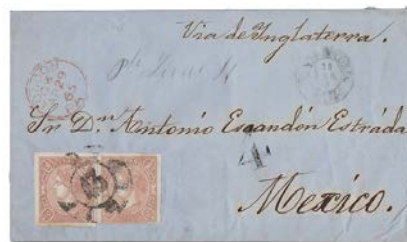 Via de Ynglaterra.
Sr Dn. Antonio Escandón Estrada
4
Mexico.